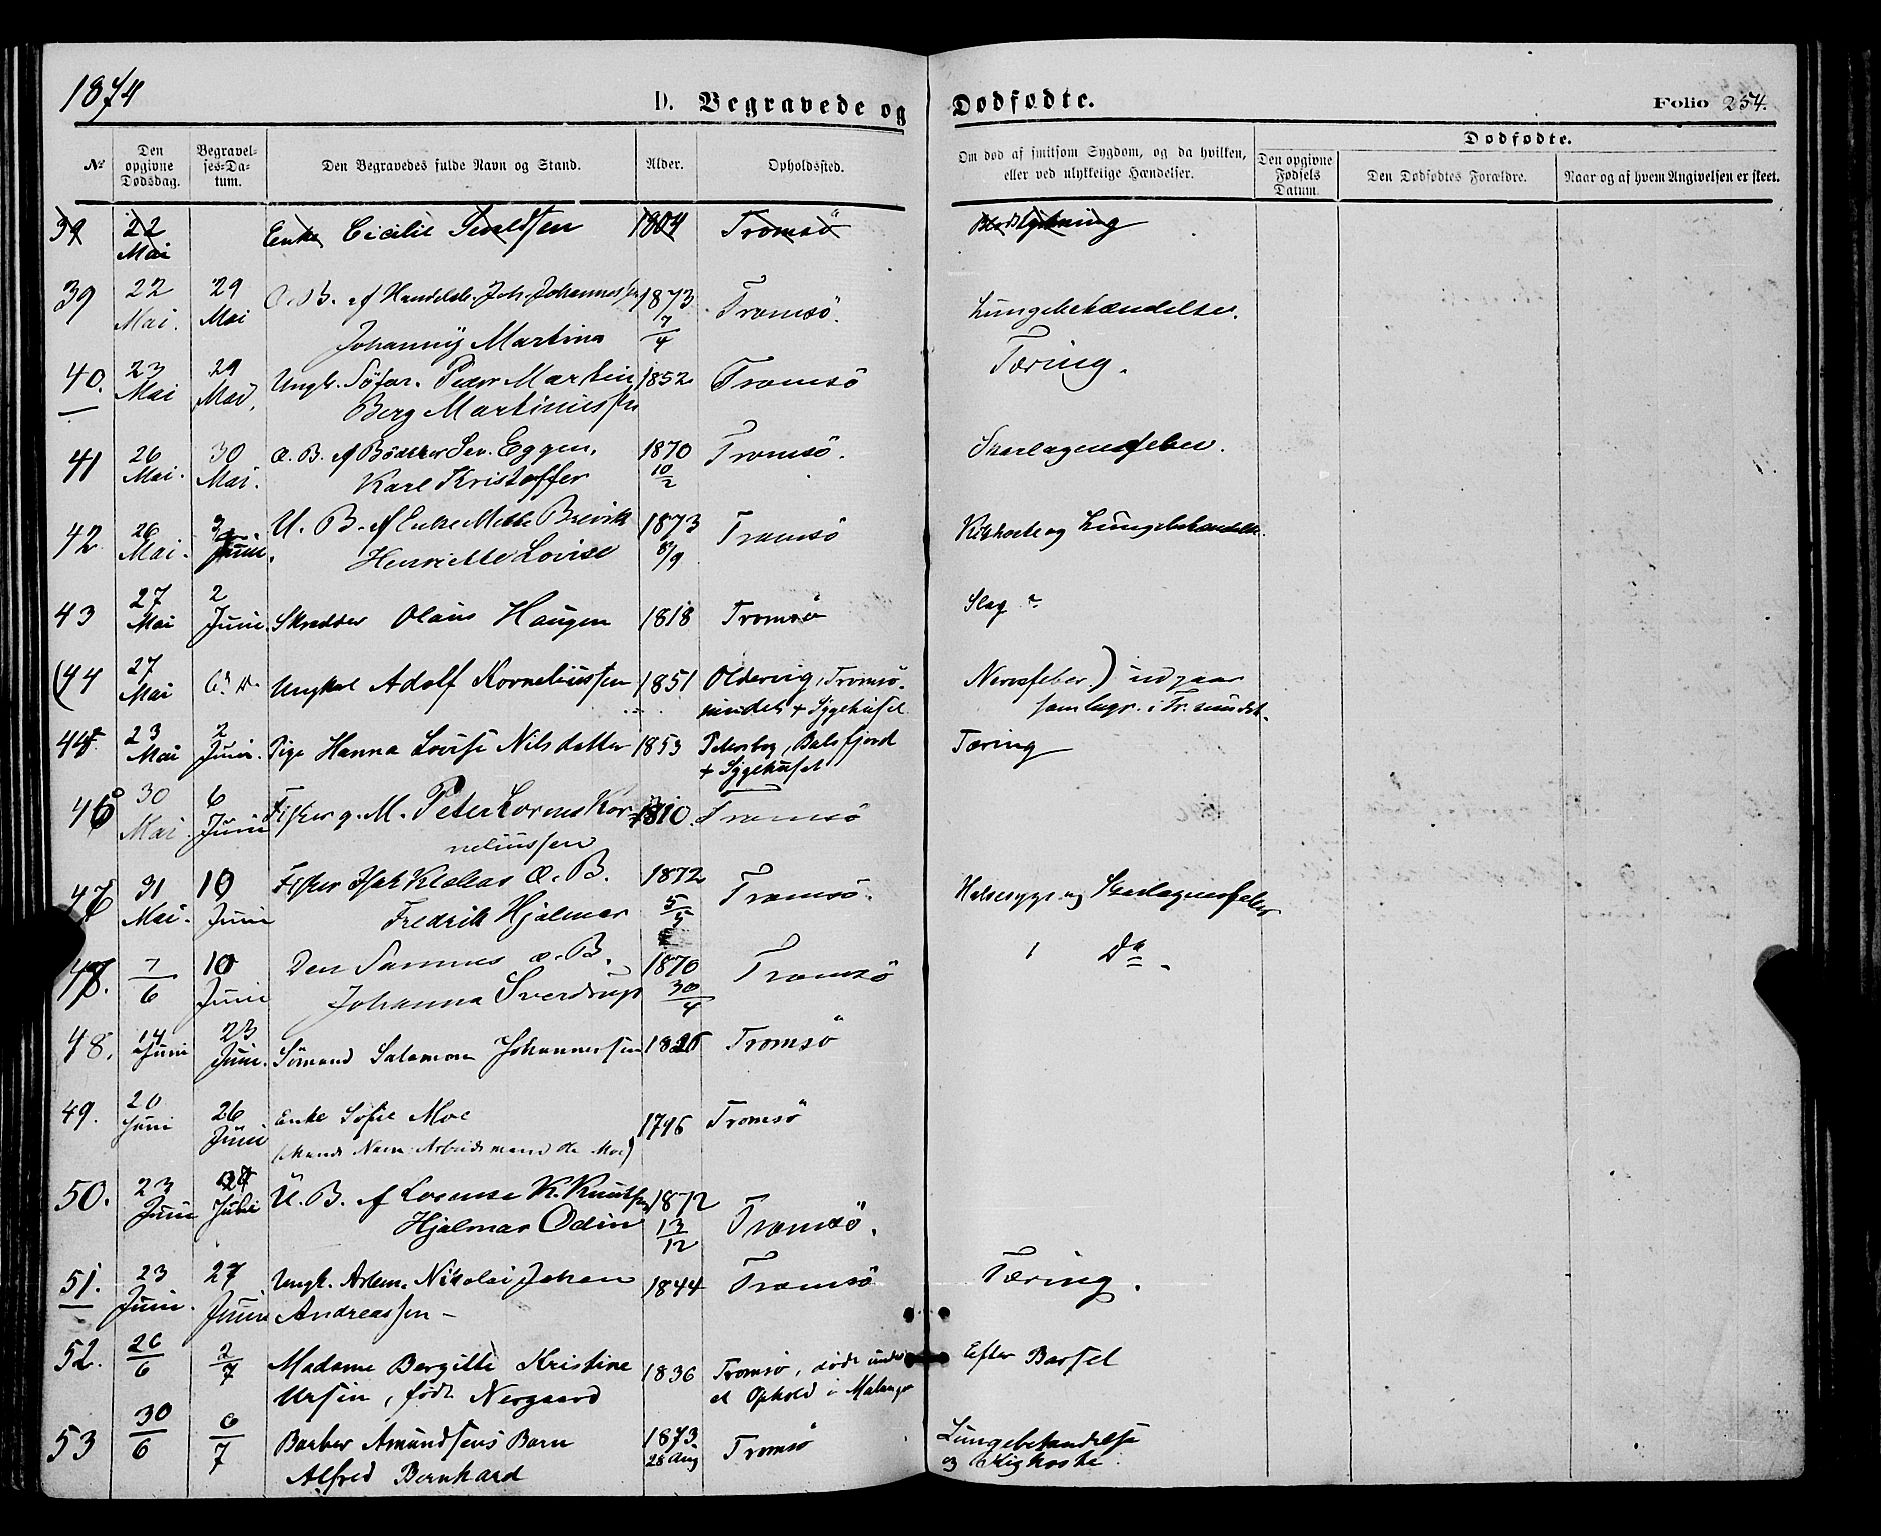 1874
D. Begravede og Dødfødte.
Folio 254.
No
Den opgivne Dødsdag.
Begravelses-Datum.
Den Begravedes fulde Navn og Stand.
Alder.
Opholdssted.
Om død af smitsom Sygdom, og da hvilken, eller ved ulykkelige Hændelser.
Dødfødte.
Den opgivne Fødsels Datum.
Den Dødfødtes Forældre.
Naar og af hvem Angivelsen er skeet.
39 22 Enke Cicilie 1804 Tromsö
Mai
39 22 29 Æ. B. af Handelsb. Joh. Johannessen 1873 Tromsö. Lungebetændelse.
Mai. Mai Johanny Martina 7/4
40. 23 29 Ungk. Söfar. Peder Martin 1852 Tromsö Tæring.
Mai Mai. Berg Martinussen
41 26 30 Æ. B. af Bödker Sev. Eggen. 1870 Tromsö. Skarlagensfeber.
Mai. Mai. Karl Kristoffer 10/2
42 26 3 U. B. af Enke Mette Brevik 1873 Tromsö Kighoste og Lungebetændelse.
Mai. Juni. Henriette Lovise 8/9
43 27 2 Skrædder Olaus Haugen 1818 Tromsö Slag
Mai Juni
(44 27 Ungkarl Adolf Korneliussen 1851 Oldervig, Tromsö- Nervefeber) udgaar
Mai sundet + Sygehuset
44 23 2 Pige Hanna Lovise Nilsdatter 1853 Petersbg, Balsfjord Tæring
Mai Juni. + Sygehuset
46 30 6 Fisker g. M. Peter Lorens Kor- 1810. Tromsö
Mai. Juni neliussen
47 31 10 Fisker Æ. B. 1872 Tromsö. Halsesyge og Skarlagensfeber
Mai. Juni Fredrik Hjalmar 5/5
48. 7/6 10 Den Sammes Æ. B. 1870 Tromsö Do
Juni Johanna Sverdrup 30/4
48. 14 23 Sömand Salamon Johannessen Tromsö
Juni Juni.
49. 20 26 Enke Sofie Moe 1796 Tromsö
Juni Juni (Mands Navn Arbeidsmand Ole Moe)
50. 23 U. B. af Lorense K. Knutsen 1872 Tromsö.
Juni Juli Hjalmar Odin 13/12
51. 23 27 Ungk. Arbm. Nikolai Johan 1844 Tromsö Tæring.
Juni. Juni Andreassen -
52. 26/6 2/7 Madame Bergitte Kristine 1836 Tromsö, döde under Efter Barsel
Ursin, født Norgaard et Ophold i Malangen
53 30/6 6/7 Barber Amundsens Barn 1873 Tromsö Lungebetændelse
Alfred Bernhard 28 Aug og Kighoste